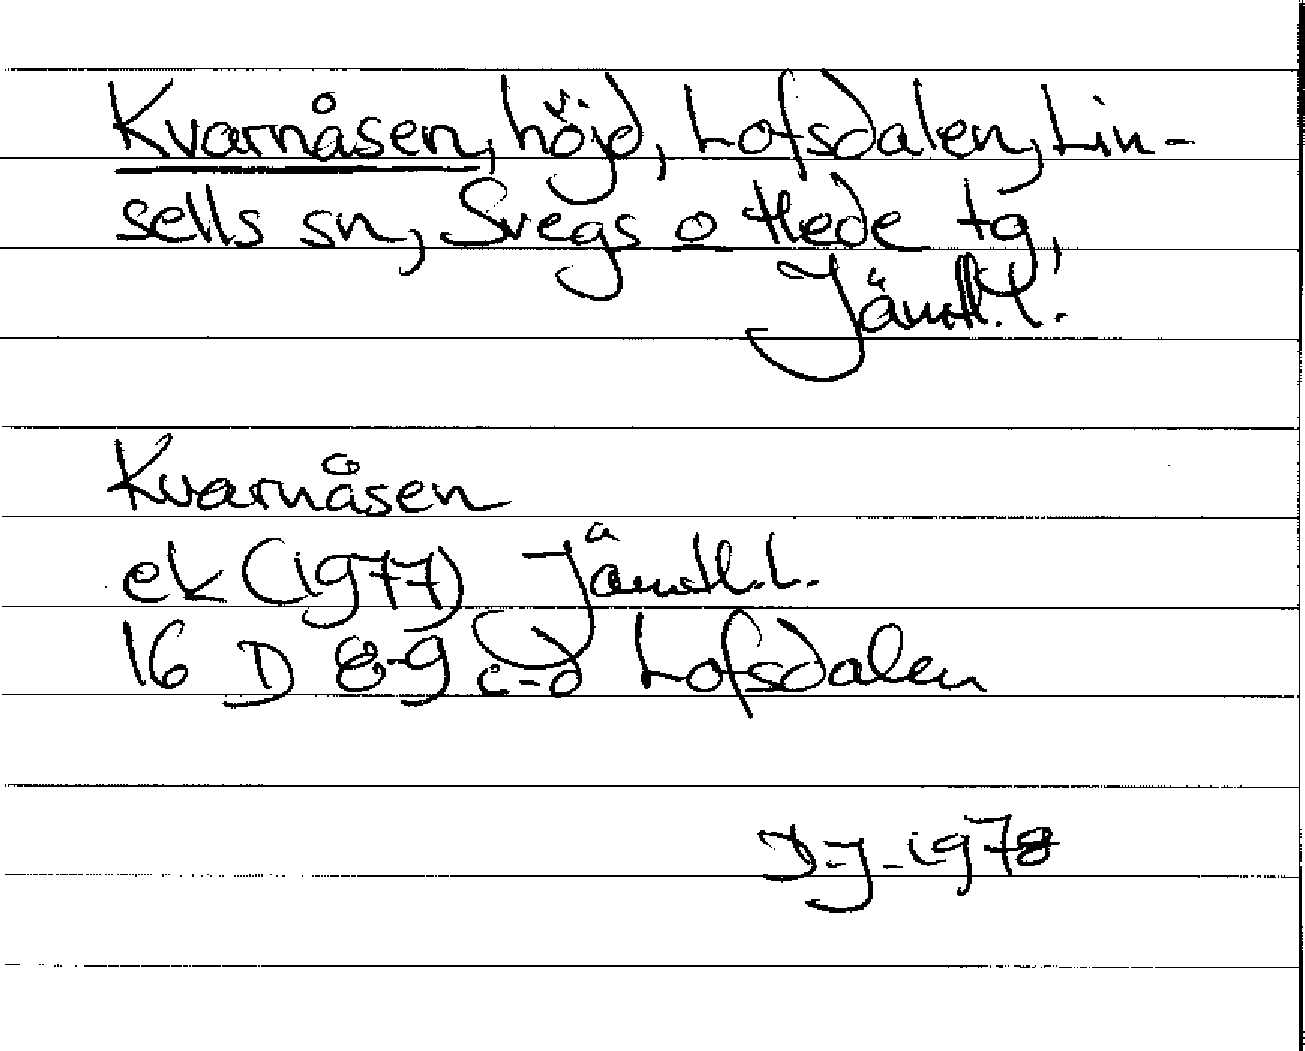 Kvarnåsen, höjd, Lofsdalen, Lin-
sells sn, Svegs o Hede tg,
Jämtl. l.
Kvarnåsen
ek (1977) Jämtl. l.
16 D 8-9 c-d Lofsdalen
D-J-1978